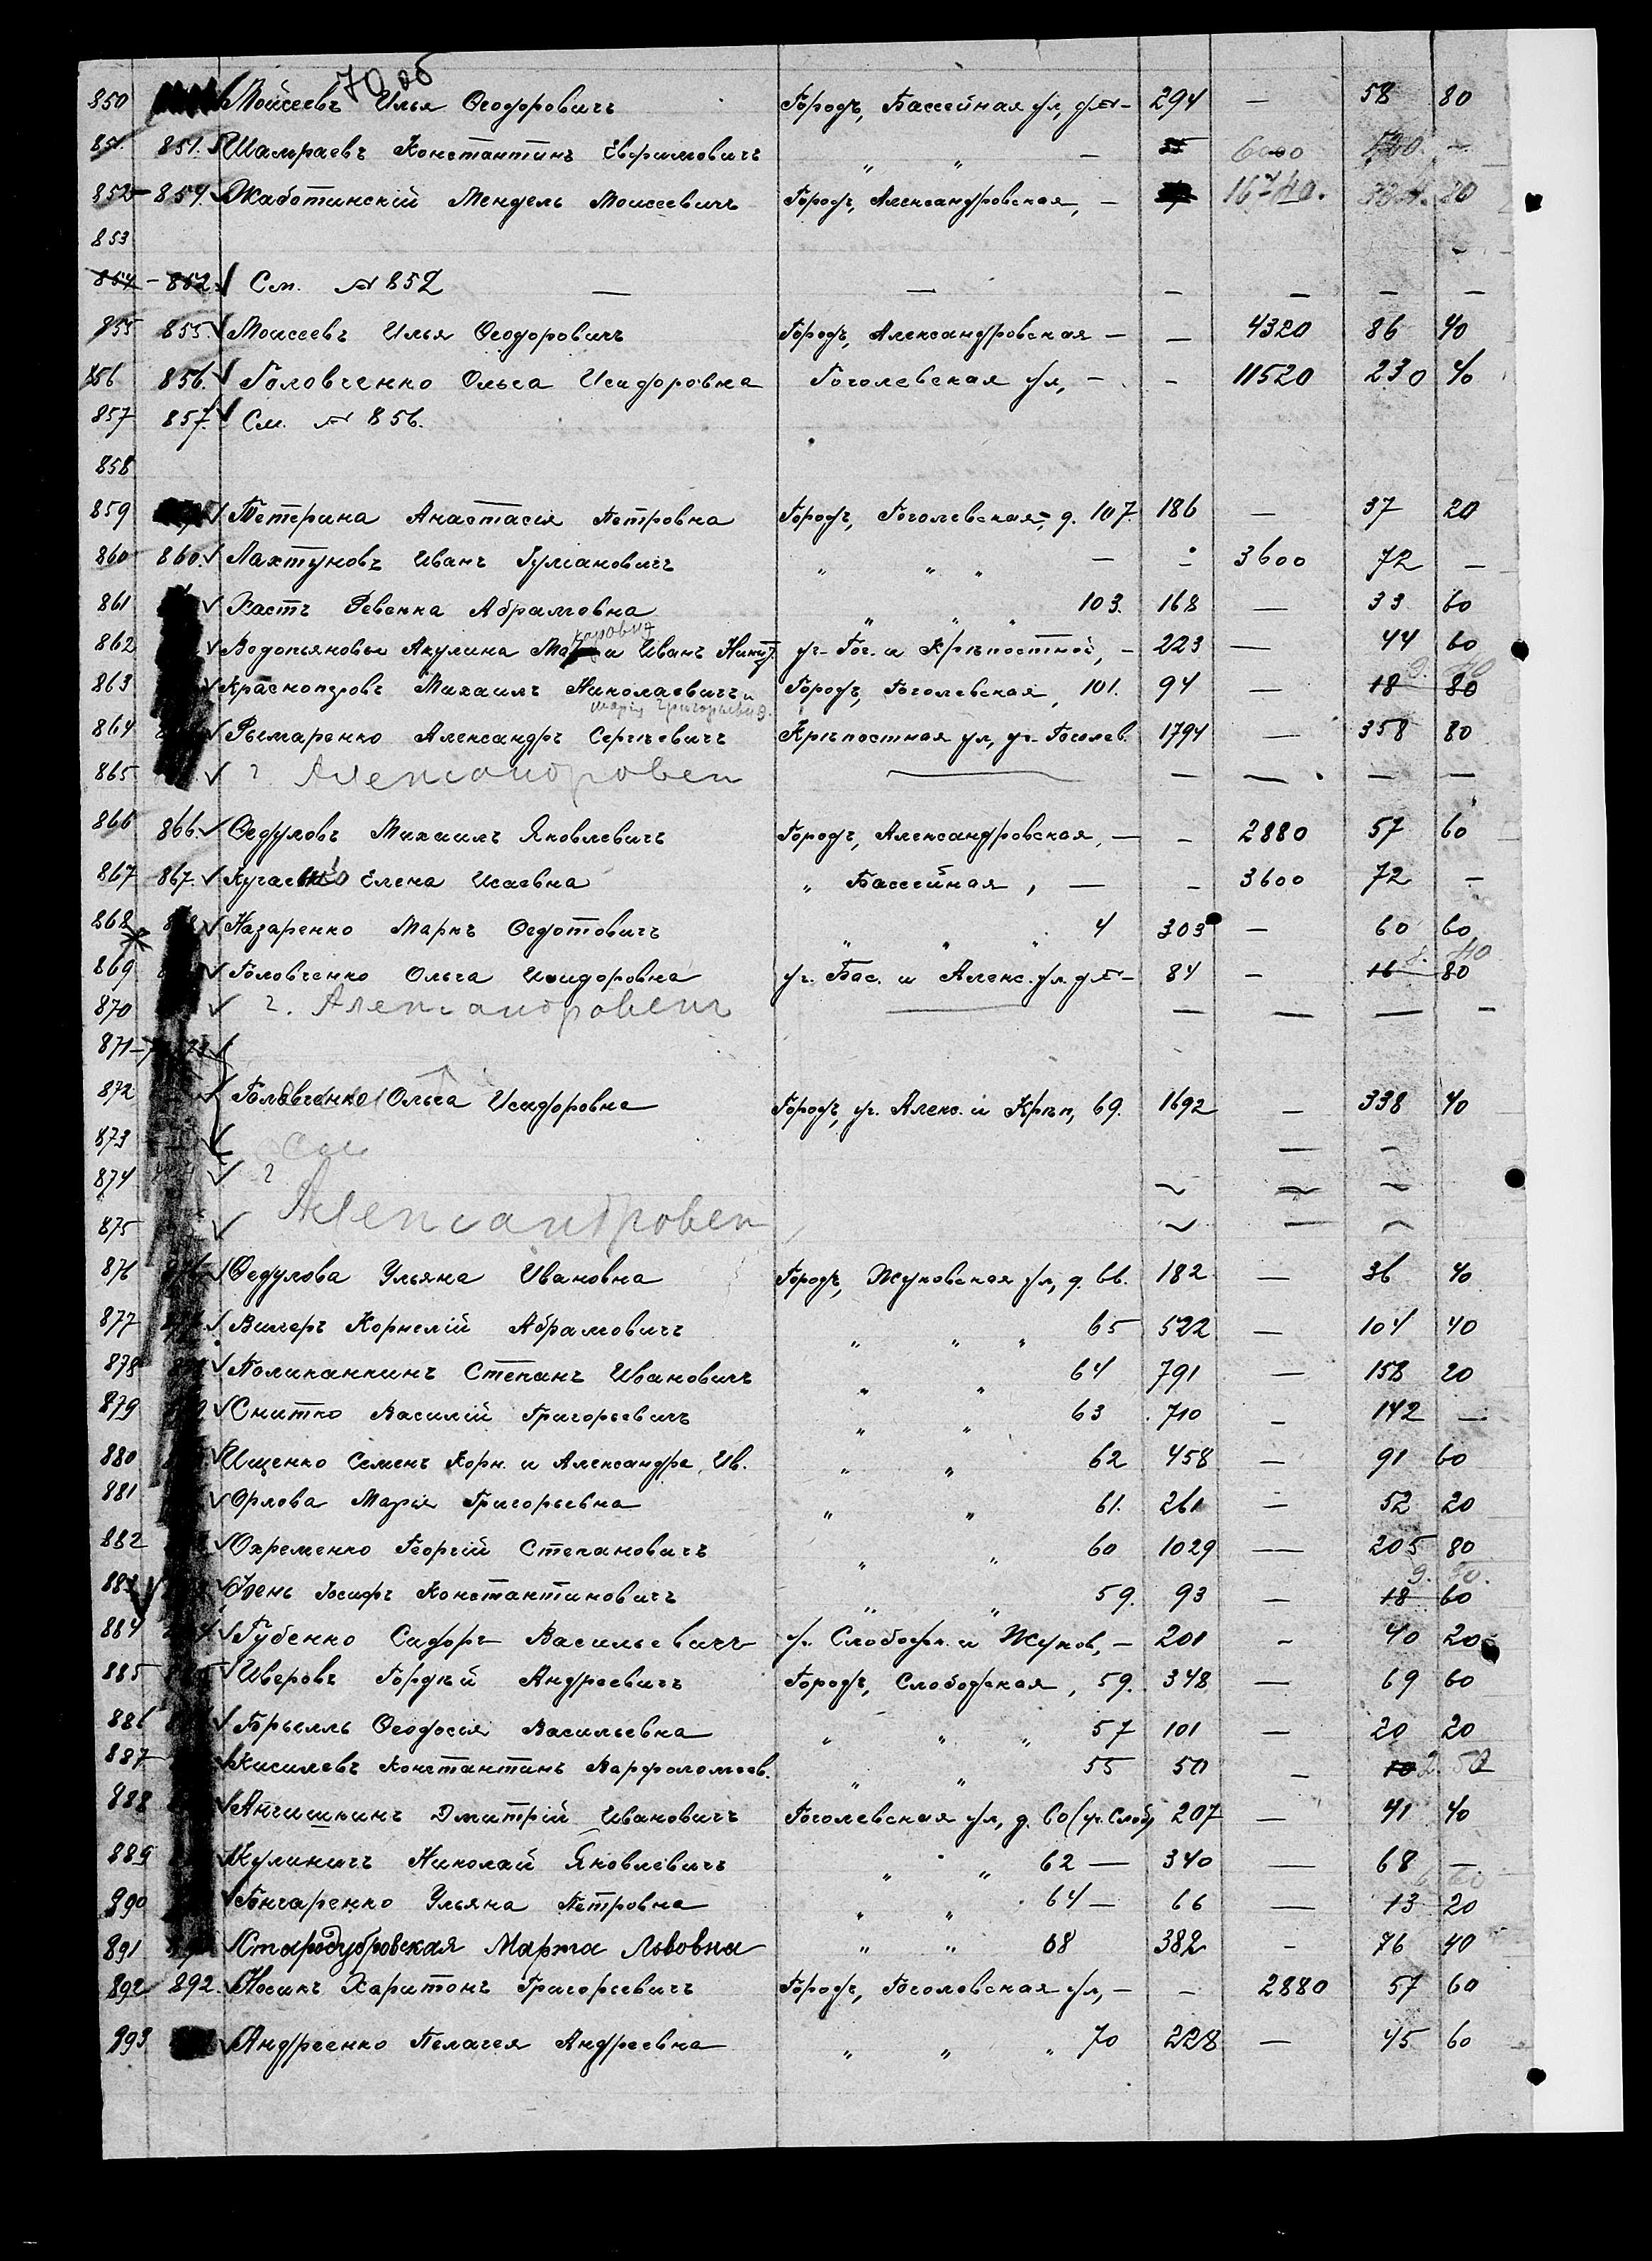 70 об
850 Моисеевъ Илья Ѳеодоровичъ Городъ, Бассейная ул, д № - 294 — 58 80
851. 851. Шамраевъ Константинъ Евфимовичъ „ „ — 6000 —
852 - 854. Жаботинскій Мендель Моисеевичъ Городъ, Александровская, —
853
854 - 852. См. № 852 — — — — — —
855 855. Моисеевъ Илья Ѳеодоровичъ Городъ, Александровская — — 4320 86 40
856 856. Головченко Ольга Исидоровна Гоголевская ул, — - 11520 230 40
857 857. См. № 856.
858
859 Петрина Анастасія Петровна Городъ, Гоголевская, д. 107. 186 — 37 20
860 860. Лахтуновъ Иванъ „ „ „ — - 3600 72 —
861 Хастъ Ревекка Абрамовна „ „ „ 103. 168 — 33 60
862 Водопьяновы Акулина Макаровна и Иванъ Никит. уг. Гог. и Крѣпостной, - 223 — 44 60
863 Михаилъ Николаевичъ и Городъ, Гоголевская, 101. 94 — 18 80
Марія Григорьевна.
864 Рымаренко Александръ Сергѣевичъ Крѣпостная ул, уг. Гоголев. 1794 — 358 80
865 г. Александровск — — — — —
866 866. Ѳедуловъ Михаилъ Яковлевичъ Городъ, Александровская, — - 2880 57 60
867 867. Елена Исаевна „ Бассейная, — - 3600 72 —
868 Назаренко Маркъ Ѳедотовичъ „ „ „ 4 303 — 60 60
869 Головченко Ольга Исидоровна уг. Бас. и Алекс. ул. д № - 84 — 16 80
870 г. Александровскъ — — — — —
871
872 Головченко Ольга Исидоровна Городъ, уг. Алекс. и Крѣп, 69. 1692 — 338 40
873 — —
874 г. — — —
Александровск
875 — — —
876 Ѳедулова Ульяна Ивановна Городъ, Жуковская ул, д. 66. 182 — 36 40
877 Вилеръ Корнелій Абрамовичъ „ „ „ 65 522 — 104 40
878 Поликанкинъ Степанъ Ивановичъ „ „ 64 791 — 158 20
879 Снитко Василій Григорьевичъ „ „ 63 710 — 142 —
880 Ищенко Семенъ Корн. и Александра Ив. „ „ 62 458 — 91 60
881 Орлова Марія Григорьевна „ „ 61. 261 — 52 20
882 Охременко Георгій Степановичъ „ „ 60 1029 — 205 80
883 Іосифъ Константиновичъ „ „ 59. 93 — 18 60
884 Губенко Сидоръ Васильевичъ уг. Слободск. и Жуков, — 201 - 40 20
885 Иверовъ Гордѣй Андреевичъ Городъ, Слободская, 59. 348 — 69 60
886 Брылль Ѳеодосія Васильевна „ „ „ 57 101 — 20 20
887 Киселевъ Константинъ Варфоломеев. „ „ 55 50 — 10 2 50
888 Анчишкинъ Дмитрій Ивановичъ Гоголевская ул, д. 60 (уг. Слоб) 207 — 41 40
889 Кулиничъ Николай Яковлевичъ „ „ 62 — 340 — 68 —
890 Гончаренко Ульяна Петровна „ „ 64 — 66 — 13 20
891 Стародубровская Марта Львовна „ „ 68 382 - 76 40
892 892. Носикъ Харитонъ Григорьевичъ Городъ, Гоголевская ул, — - 2880 57 60
893 Андреенко Пелагея Андреевна „ „ „ 70 228 — 45 60